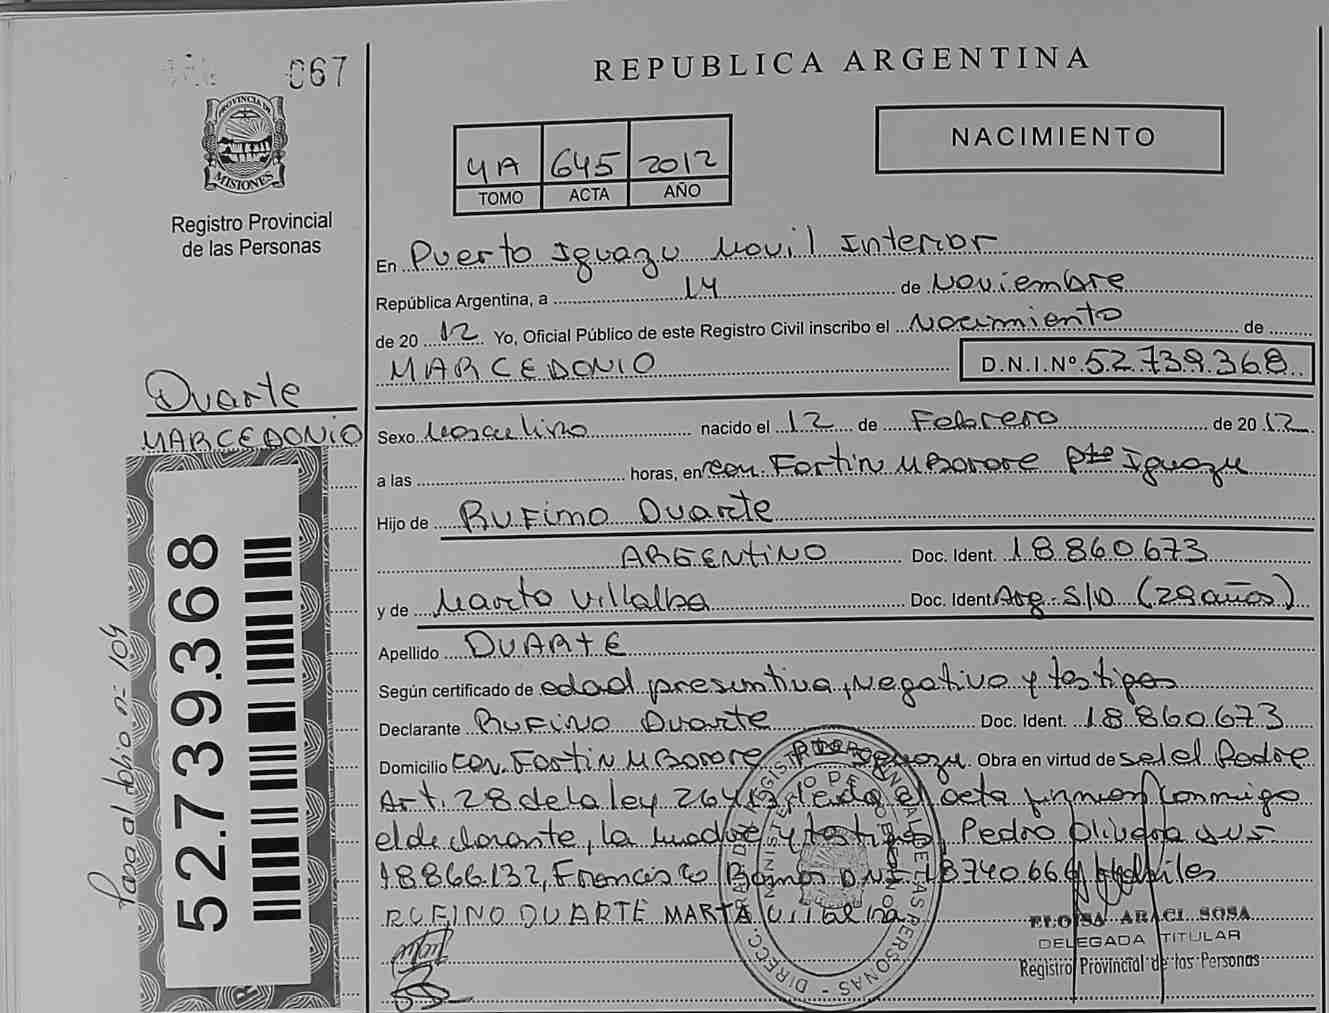 067
REPUBLICA ARGENTINA
PROVINCIA DE
MISIONES
Registro Provincial
de las Personas
4A 645 2012
TOMO ACTA AÑO
NACIMIENTO
En Puerto Iguazu Movil Interior
República Argentina, a 14 de Noviembre
de 20 12 Yo, Oficial Público de este Registro Civil inscribo el Nacimiento de
MARCEDONIO D.N.I.Nº 52.739.368
Duarte
MARCEDONIO
Sexo Masculino nacido el 12 de Febrero de 20 12
a las horas, en Com. Fortin M Borore Pto Iguazu
Hijo de Rufino Duarte
ARGENTINO Doc. Ident. 18.860.673
y de Marta Villalba Doc. Ident. Arg. S/D (29 años)
Apellido DUARTE
Según certificado de edad presuntiva, Negativo y testigos
Declarante RUFINO Duarte Doc. Ident. 18.860.673
Domicilio Com. Fortin M Borore Pto Iguazu Obra en virtud de ser el Padre
Art. 28 de la ley 26413 leida el acta firman conmigo
el declarante, la madre y testigos Pedro Olivera DNI
18866.132, Francisco Ramos DNI 18740.66 habiles
RUFINO DUARTE MARTA Villalba
ELOISA ARACI SOSA
DELEGADA TITULAR
Registro Provincial de las Personas
52.739.368
Paso al folio nº 109